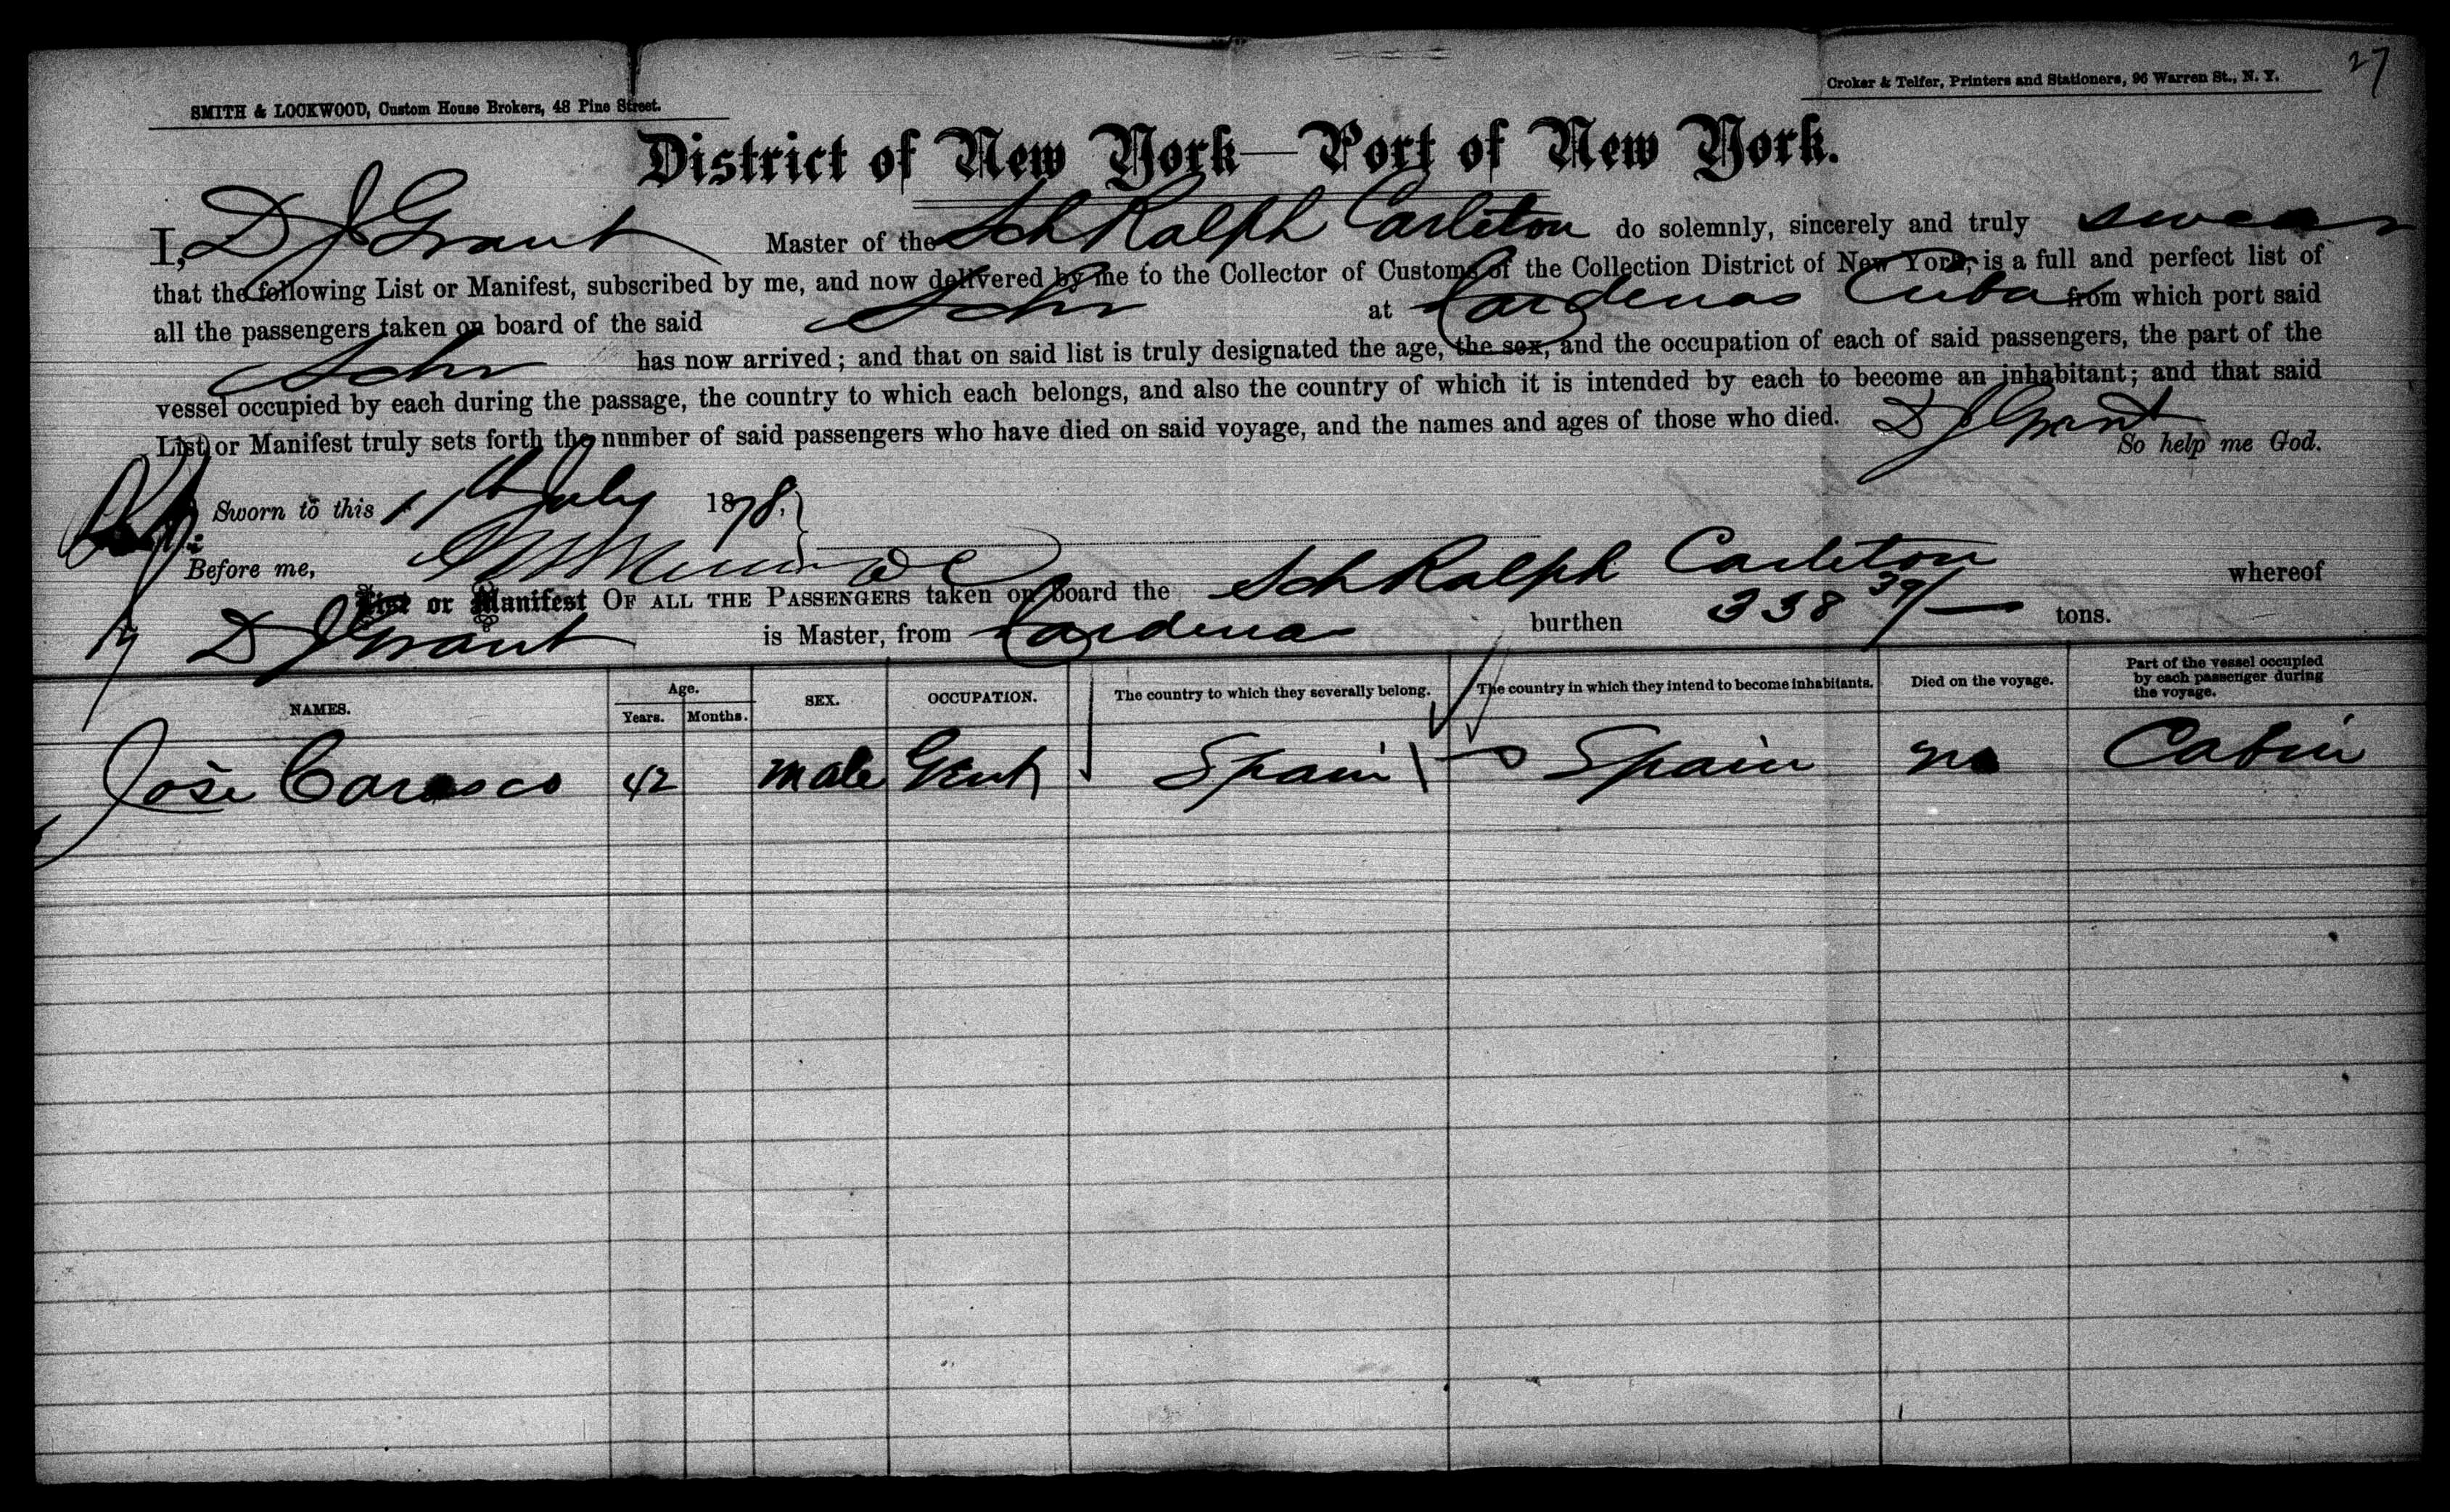 27
SMITH & LOCKWOOD, Custom House Brokers, 48 Pine Street.
Croker & Telfer, Printers and Stationers, 96 Warren St., N. Y.
District of New York—Port of New York.
I, D J Grant Master of the Sch Ralph Carleton do solemnly, sincerely and truly swear
that the following List or Manifest, subscribed by me, and now delivered by me to the Collector of Customs of the Collection District of New York, is a full and perfect list of
all the passengers taken on board of the said Schr at Cardenas Cuba from which port said
Schr has now arrived; and that on said list is truly designated the age, the sex, and the occupation of each of said passengers, the part of the
vessel occupied by each during the passage, the country to which each belongs, and also the country of which it is intended by each to become an inhabitant; and that said
List or Manifest truly sets forth the number of said passengers who have died on said voyage, and the names and ages of those who died. D J Grant
So help me God.
Sworn to this 11th July 1878.
Before me,
List or Manifest OF ALL THE PASSENGERS taken on board the Sch Ralph Carleton whereof
D J Grant is Master, from Cardenas burthen 338 39/ tons.
NAMES. Age. Years. Months. SEX. OCCUPATION. The country to which they severally belong. The country in which they intend to become inhabitants. Died on the voyage. Part of the vessel occupied by each passenger during the voyage.
José Carasco 42 male Gent Spain Spain no Cabin